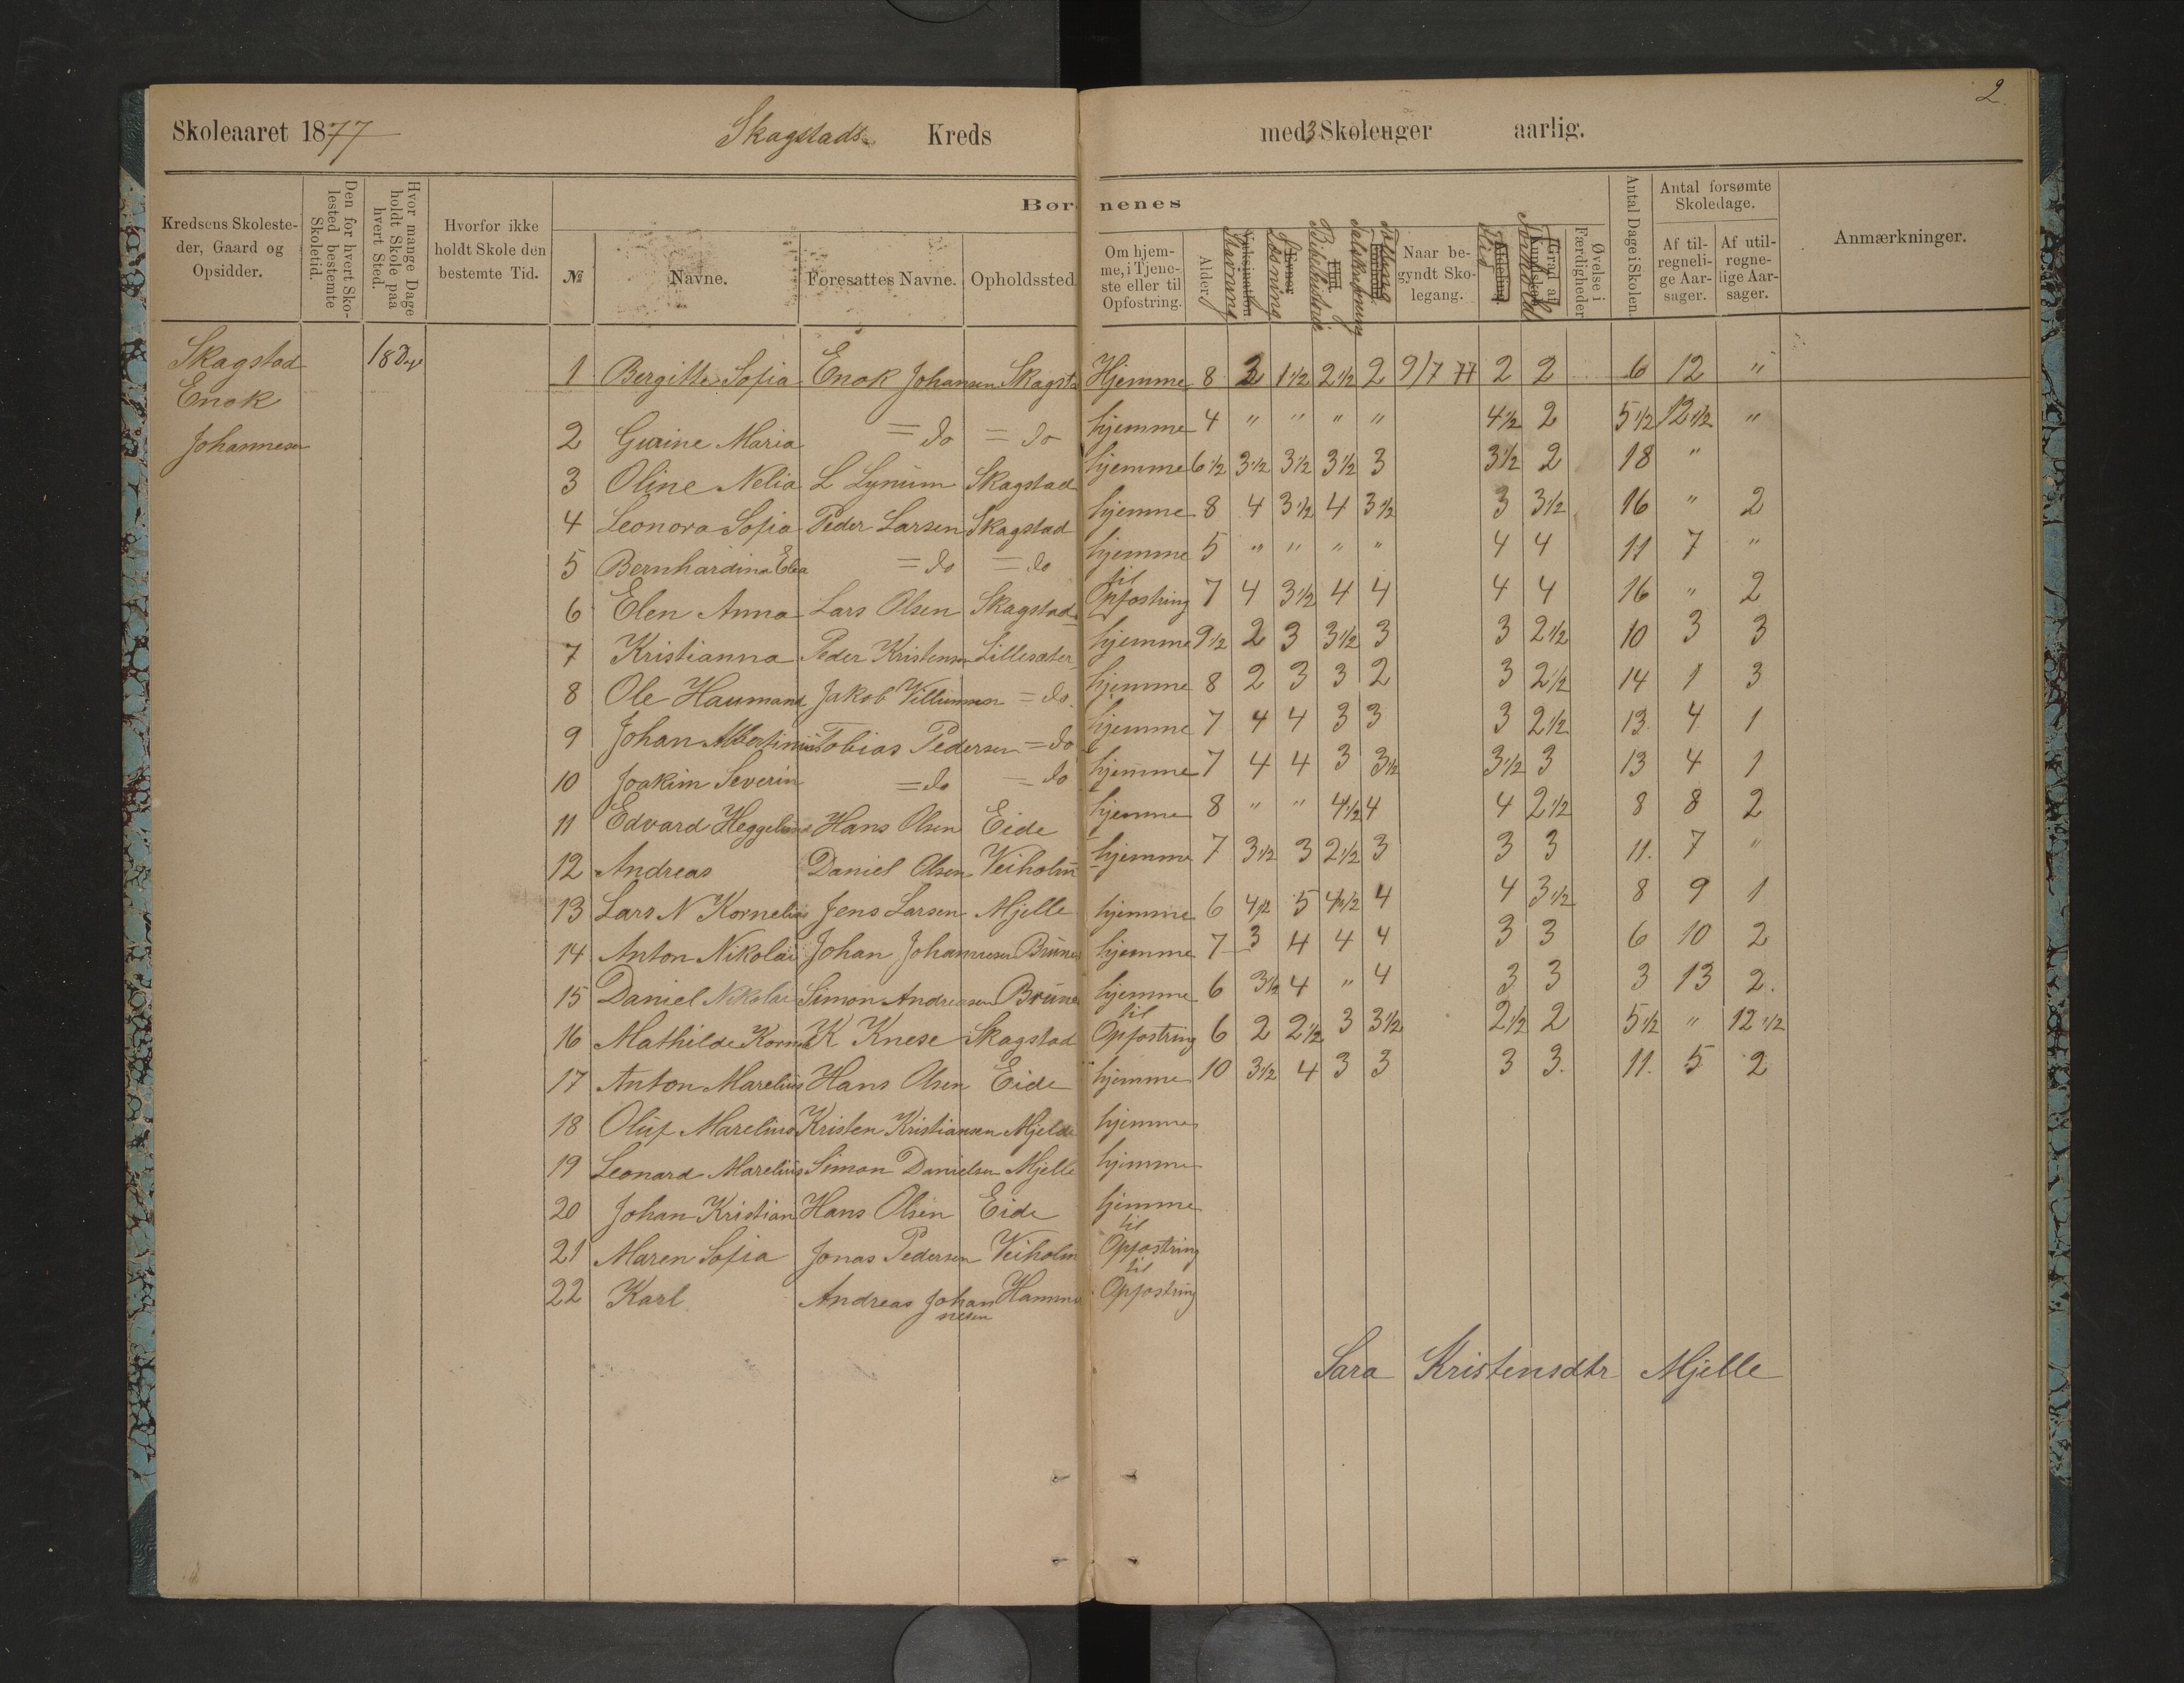 2.
Skoleaaret 1877 Skagstads Kreds med 3 Skoleuger aarlig.
Kredsens Skolesteder, Gaard og Opsidder. Den for hvert Skolested bestemte Skoletid. Hvor mange Dage holdt Skole paa hvert Sted. Hvorfor ikke holdt Skole den bestemte Tid. Børnenes Antal Dage i Skolen. Antal forsømte Skoledage. Anmærkninger.
№ Navne. Foresattes Navne. Opholdssted Om hjemme, i Tjeneste eller til Opfostring. Alder Stavning Læsning Bibelhistorie Naar begyndt Skolegang. Flid Forhold Øvelse i Færdigheder Af tilregnelige Aarsager. Af utilregnelige Aarsager.
Skagstad 18
Enok
Johannesen
1 Bergitte Sofia Enok Johansen Skagst Hjemme 8 2 1½ 2½ 2 9/7 77 2 2 6 12 "
2 Maria = do = do hjemme 4 " " " " 4½ 2 5½ 12½ "
3 Oline Nelia L Lynum Skagstad hjemme 6½ 3½ 3½ 3½ 3 3½ 2 18 "
4 Leonora Sofia Peder Larsen Skagstad hjemme 8 4 3½ 4 3½ 3 3½ 16 " 2
5 Bernhardina Elea = do = do hjemme 5 " " " " 4 4 11 7 "
6 Elen Anna Lars Olsen Skagstad til Opfostring 7 4 3½ 4 4 4 4 16 " 2
7 Kristianna Peder Kristensen Lillesæter hjemme 9½ 2 3 3½ 3 3 2½ 10 3 3
8 Ole Haumand Jakob Villumsen = do. hjemme 8 2 3 3 2 3 2½ 14 1 3
9 Johan Albertinius Tobias Pedersen = do hjemme 7 4 4 3 3 3 2½ 13 4 1
10 Joakim Severin = do = do hjemme 7 4 4 3 3½ 3½ 3 13 4 1
11 Edvard Heggelund Hans Olsen Eide hjemme 8 " " 4½ 4 4 2½ 8 8 2
12 Andreas Daniel Olsen Veiholm hjemme 7 3½ 3 2½ 3 3 3 11. 7 "
13 Lars N Kornelius Jens Larsen Mjelle hjemme 6 4½ 5 4½ 4 4 3½ 8 9 1
14 Anton Nikolai Johan Johannesen Brune hjemme 7 3 4 4 4 3 3 6 10 2
15 Daniel Nikolai Simon Andreasen Brune hjemme 6 3½ 4 " 4 3 3 3 13 2.
16 Mathilde Korne K Knese Skagstad til Opfostring 6 2 2½ 3 3½ 2½ 2 5½ " 12½
17 Anton Marelius Hans Olsen Eide hjemme 10 3½ 4 3 3 3 3. 11. 5 2
18 Oluf Marelius Kristen Kristiansen Mjelde hjemme
19 Leonard Marelius Simon Danielsen Mjelle hjemme
20 Johan Kristian Hans Olsen Eide hjemme
21 Maren Sofia Jonas Pedersen Veiholm til Opfostring
22 Karl Andreas Johannesen Hammer til Opfostring
Sara Kristensdtr Mjelle